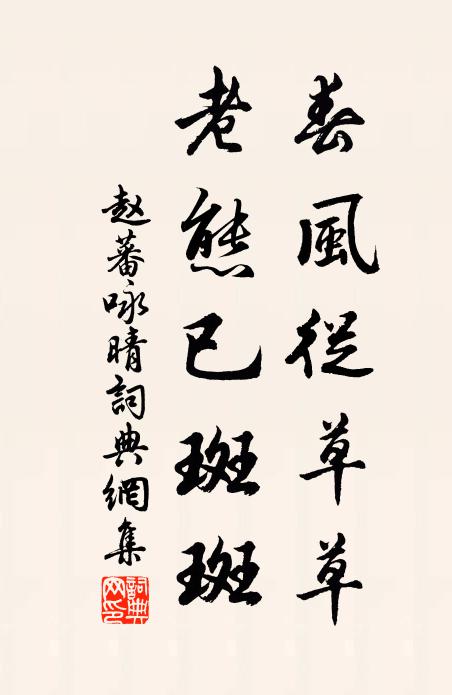 春風從草草
老態已斑斑
赵蕃咏晴詞典網集
詞典网印